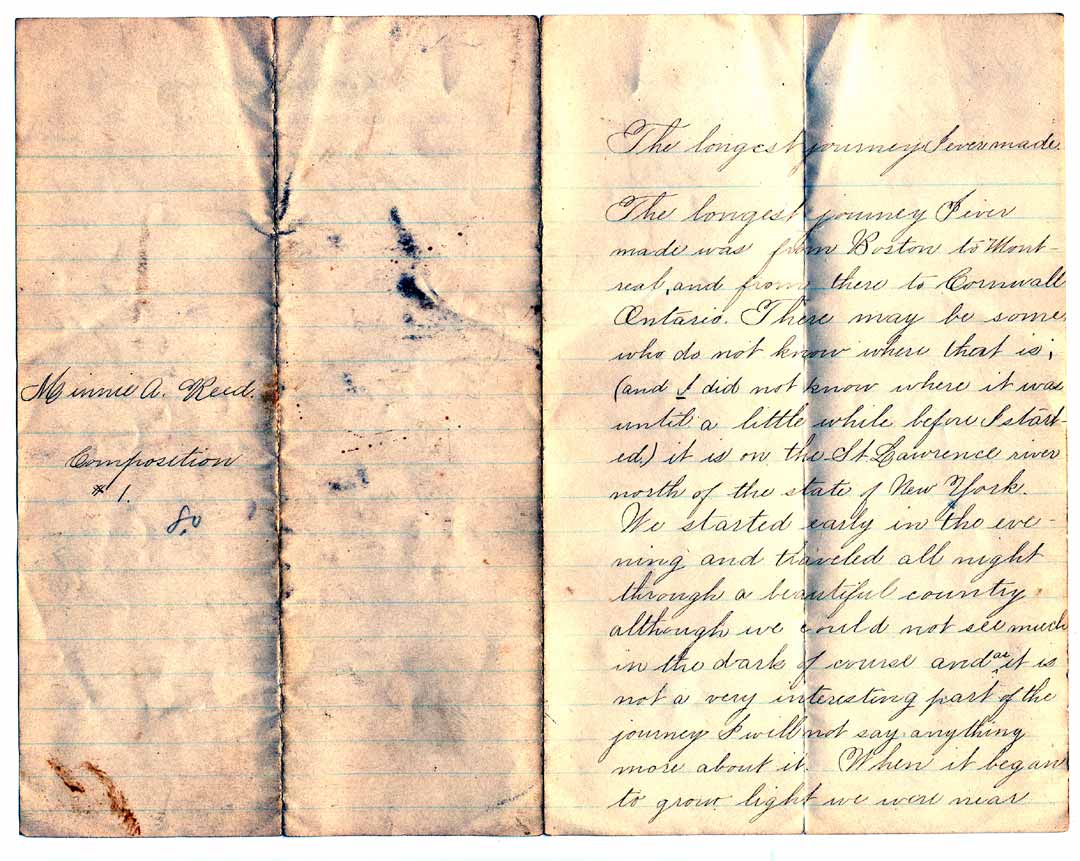 Minnie A. Reed.
Composition
# 1.
80
The longest journey I ever made.
The longest journey I ever
made was from Boston to Mont-
real, and from there to Cornwall
Ontario. There may be some
who do not know where that is;
(and I did not know where it was
until a little while before I start-
ed.) it is on the St Lawrence river
north of the state of New York.
We started early in the eve-
ning and traveled all night
through a beautiful country
although we could not see much
in the dark of course and as it is
not a very interesting part of the
journey I will not say anything
more about it. When it began
to grow light we were near